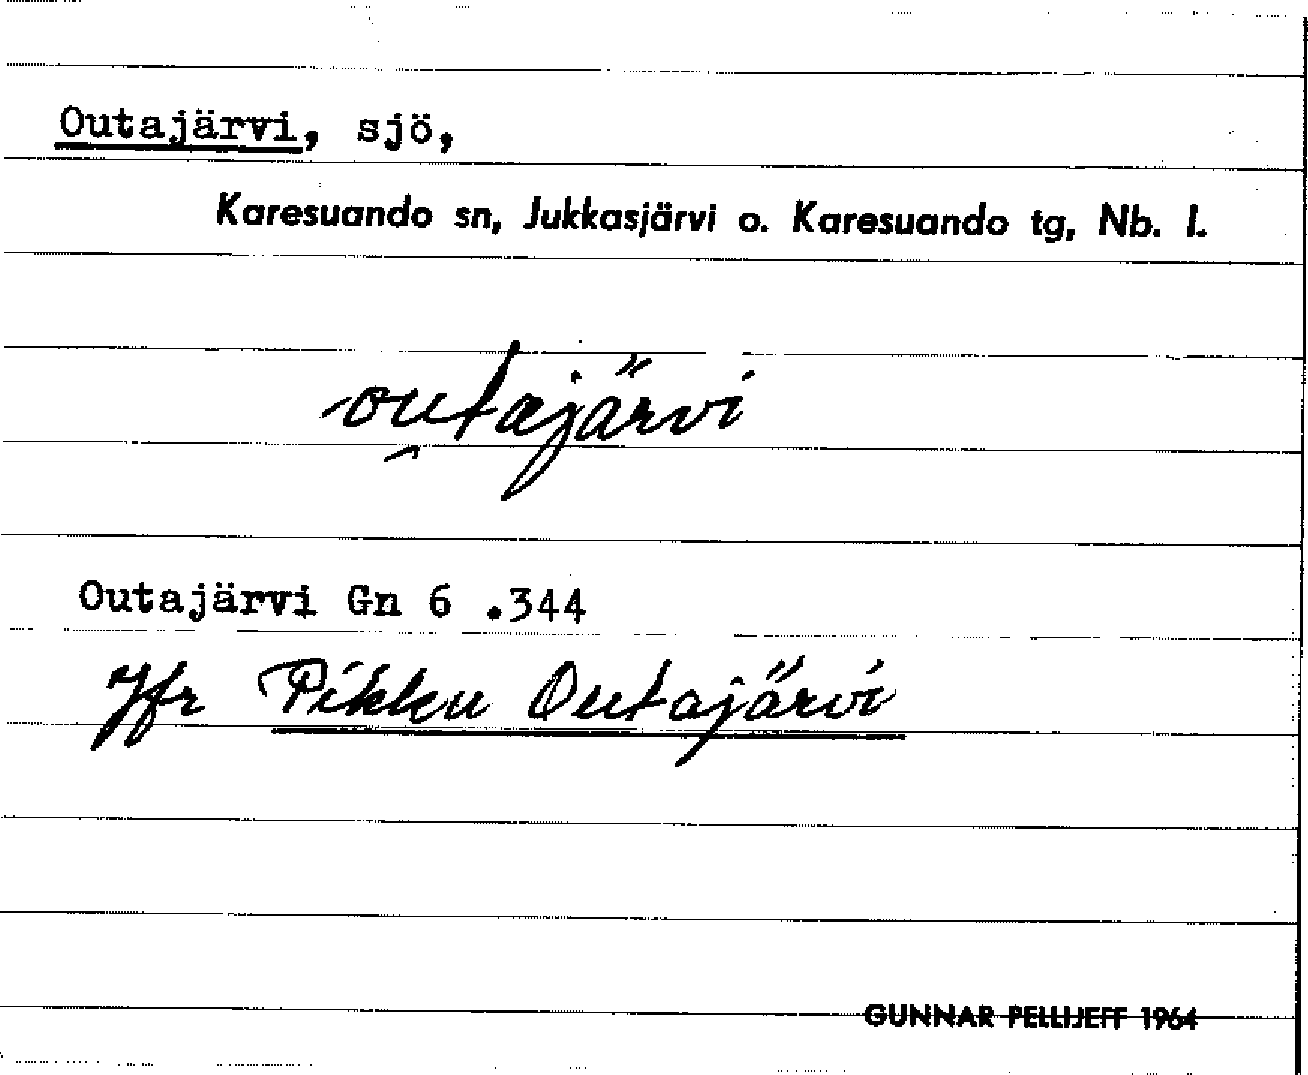 Outajärvi, sjö,
Karesuando sn, Jukkasjärvi o. Karesuando tg, Nb. l.
outajärvi
Outajärvi Gn 6 .344
Jfr Pikku Outajärvi
GUNNAR PELLIJEFF 1964